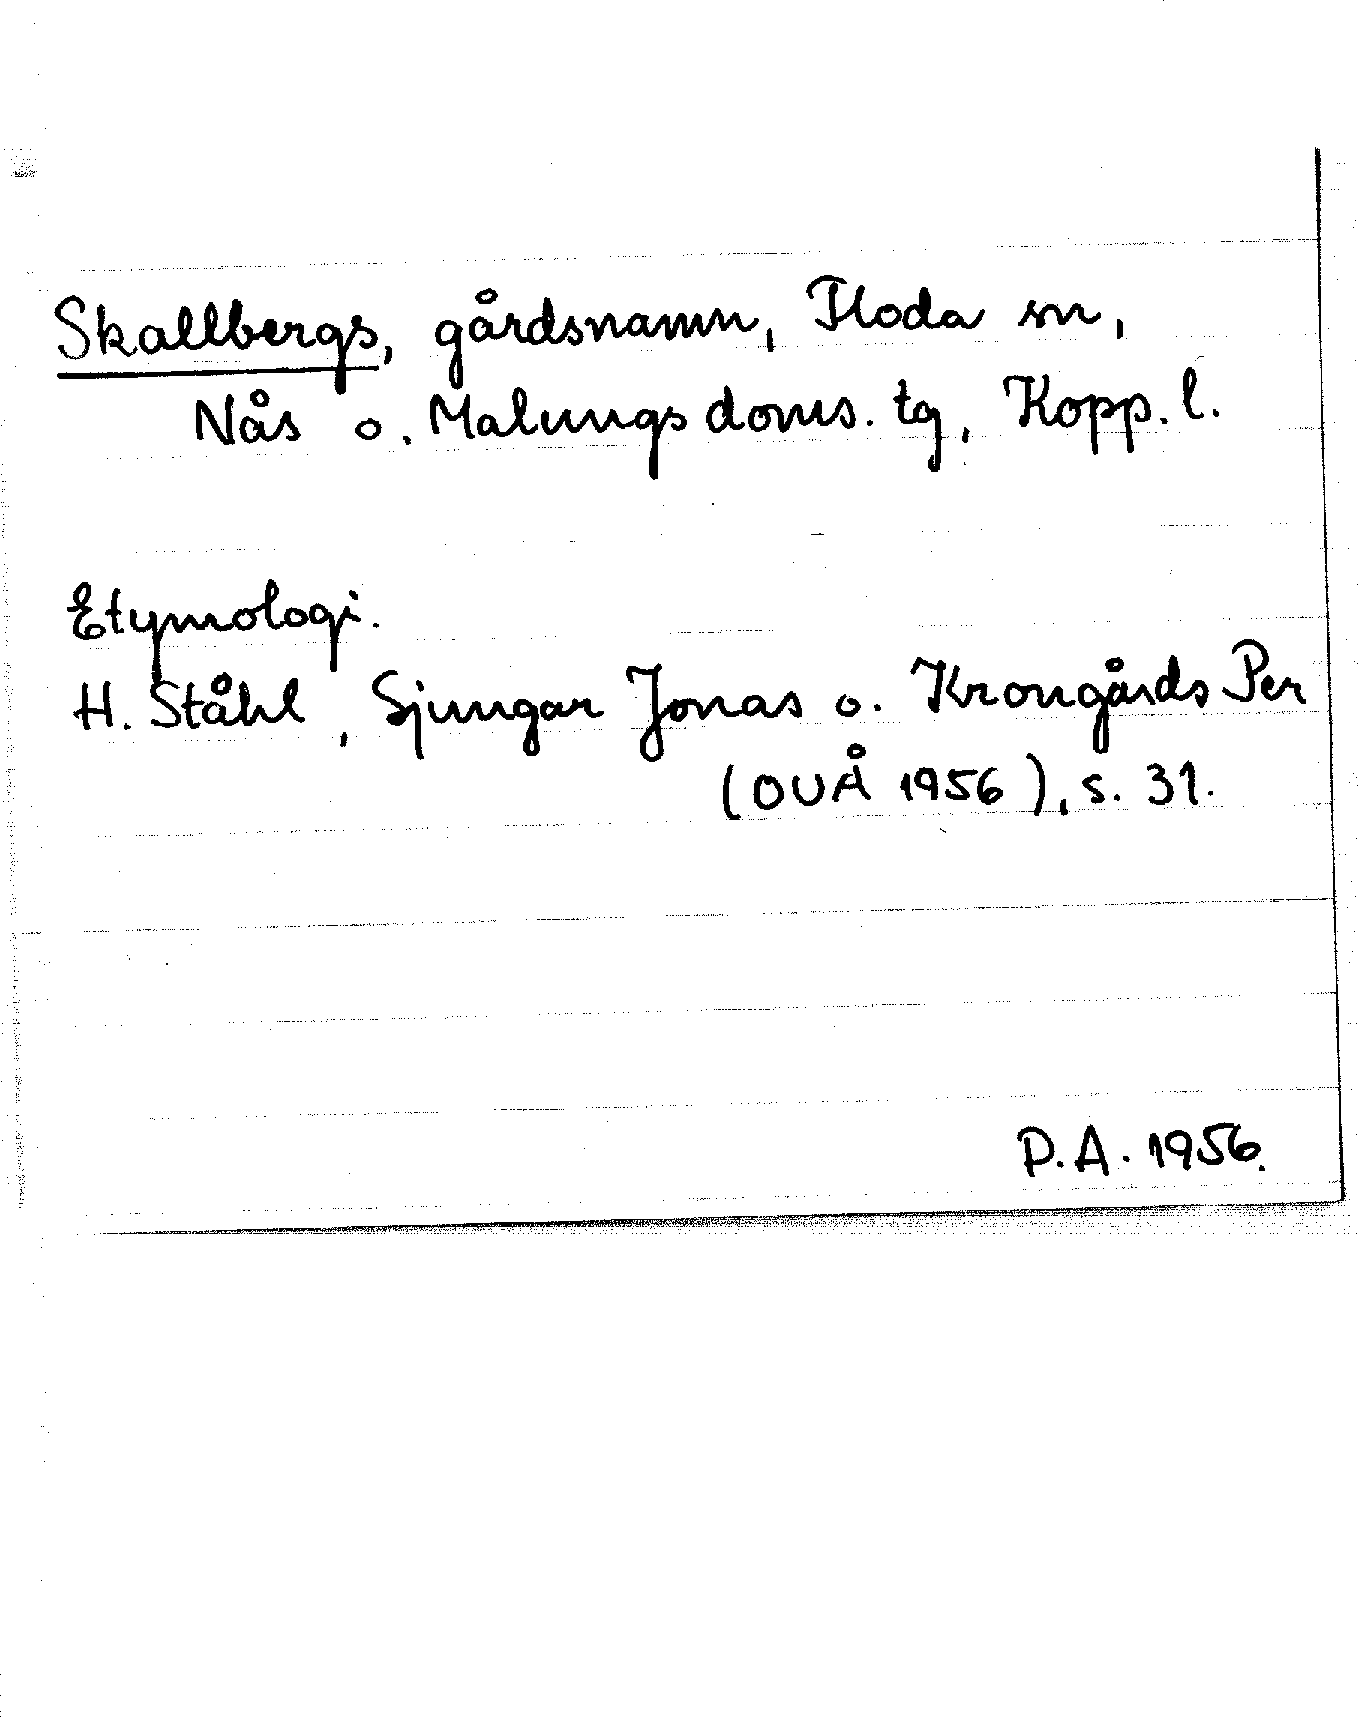 Skallbergs, gårdsnamn, Floda sn,
Nås o. Malungs doms. tg, Kopp. l.
Etymologi.
H. Ståhl, Sjungar Jonas o. Krongårds Per
(OUÅ 1956), s. 31.
P.A. 1956.